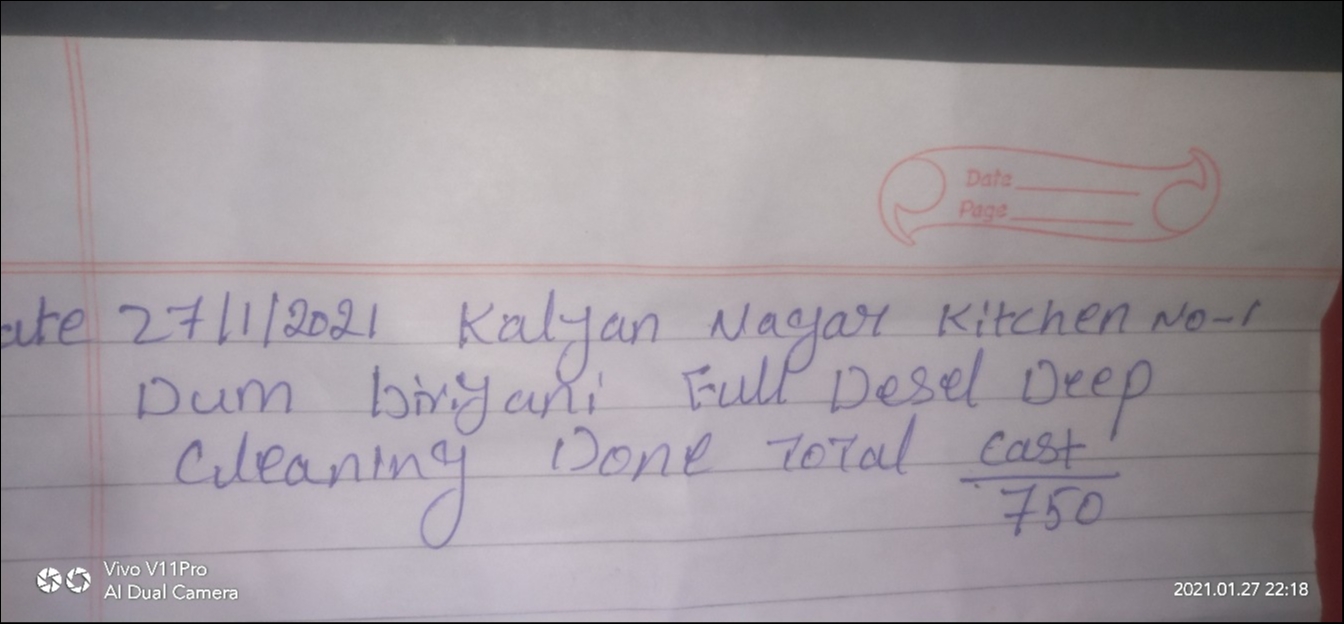 Date
Page
ate 27/1/2021 Kalyan Nagar Kitchen No-1
Dum biriyani Full Desel Deep
Cleaning Done Total cast
750
Vivo V11Pro
AI Dual Camera
2021.01.27 22:18